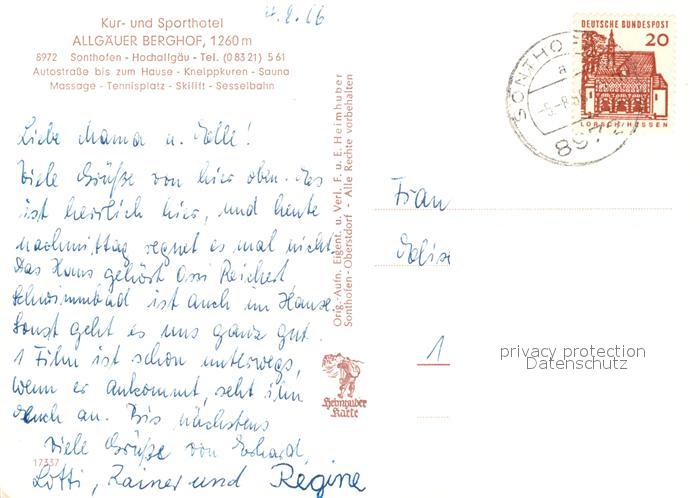 4.8.66
Kur- und Sporthotel
ALLGÄUER BERGHOF, 1260 m
8972 Sonthofen - Hochallgäu - Tel. (0 83 21) 5 61
Autostraße bis zum Hause - Kneippkuren - Sauna
Massage - Tennisplatz - Skilift - Sesselbahn
DEUTSCHE BUNDESPOST
20
LORSCH/HESSEN
SONTHO
8972
Liebe Mama u.
Viele Grüße von hier oben. Es
ist herrlich hier, und heute
nachmittag regnet es mal nicht.
Das Haus gehört Ossi Reichert
Schwimmbad ist auch im Hause.
Sonst geht es uns ganz gut.
1 Film ist schon unterwegs,
wenn er ankommt, seht ihn
Euch an. Bis nächstens
Viele Grüße von Erhard,
Lotti, Rainer und Regine
17337
Orig.-Aufn. Eigent. u. Verl. F. u. E. Heimhuber
Sonthofen - Oberstdorf - Alle Rechte vorbehalten
Heimhuber
Karte
Frau
Elise
1
privacy protection
Datenschutz